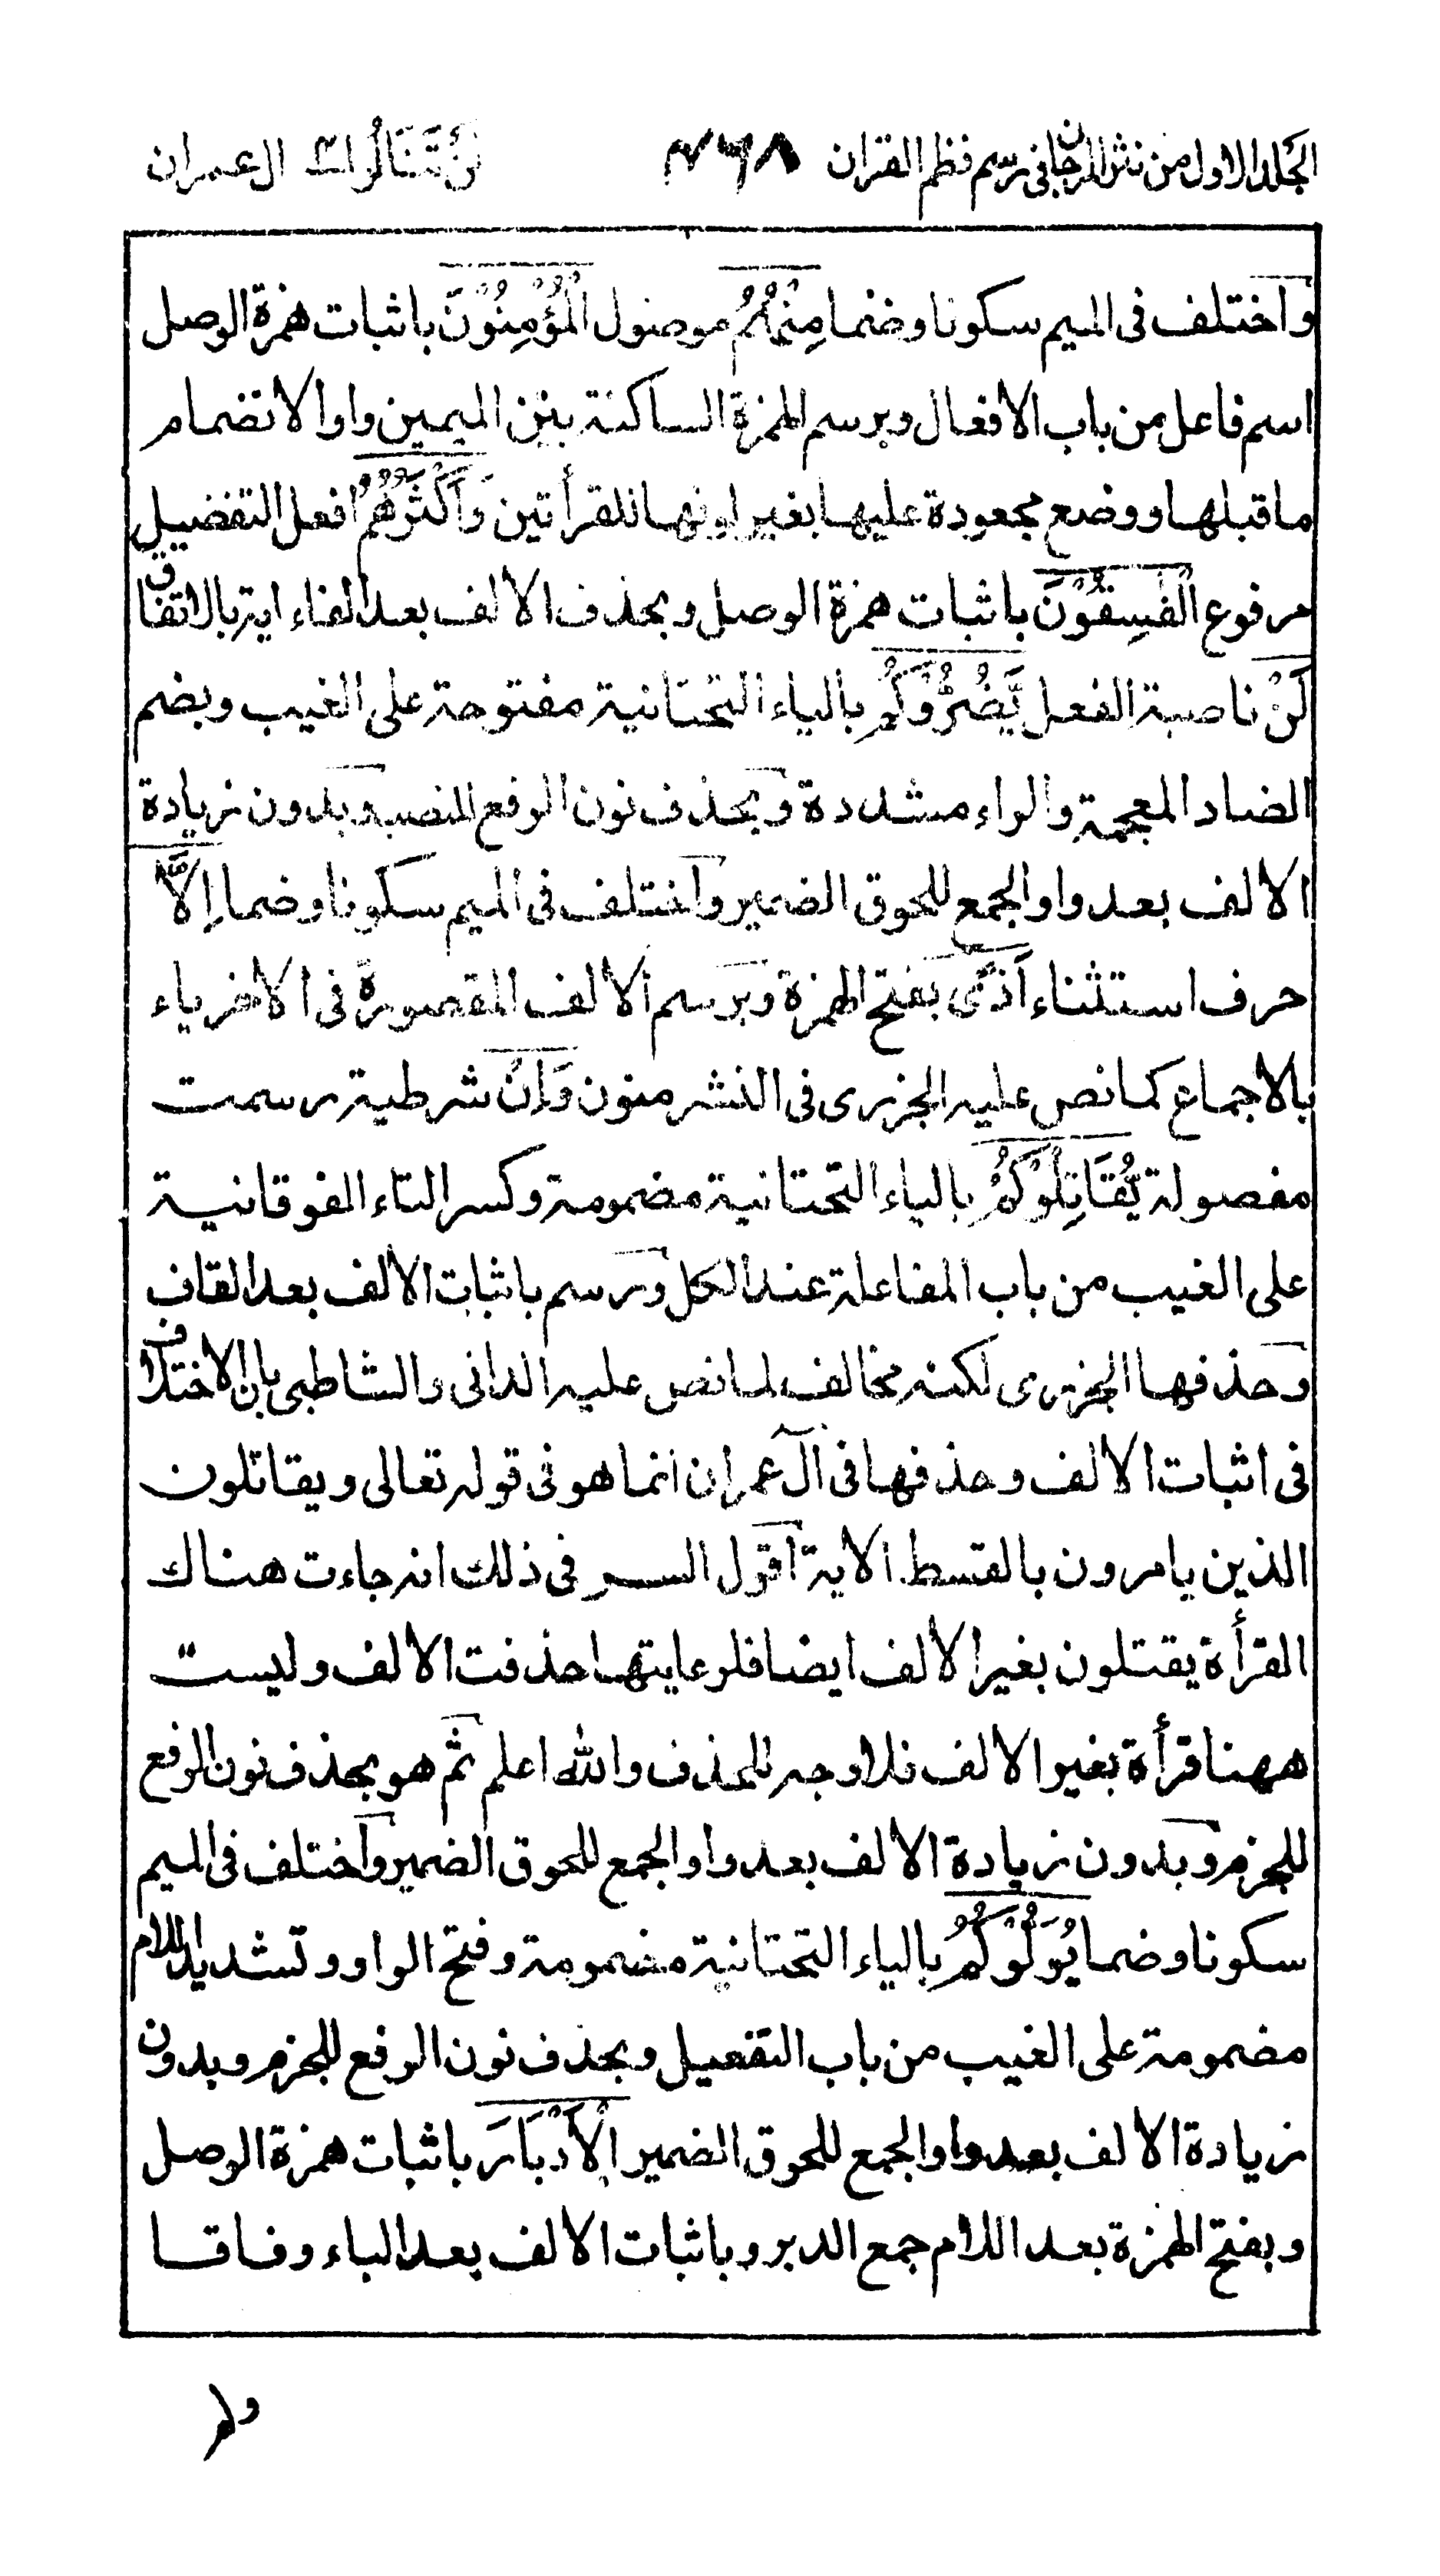 الجلد الاول من نثر المرجان فی رسم نظم القران ٤٦٨ لن تنالوا ال عمران
واختلف فی المیم سکونا وضما مِنْهُمُ موصول الْمُؤْمِنُوْنَ باثبات همزة الوصل
اسم فاعل من باب الافعال وبرسم الهمزة الساکنة بین المیمین واوا لانضمام
ما قبلها ووضع مجعودة علیها بغیر لونها للقرأتین وَاَکْثَرُهُمُ افعل التفضیل
مرفوع الْفٰسِقُوْنَ باثبات همزة الوصل وبحذف الالف بعد الفاء ایة بالاتفاق
لَنْ ناصبة الفعل یَّضُرُّوْکُمْ بالیاء التحتانیة مفتوحة علی الغیب وبضم
الضاد المعجمة والراء مشددة وبحذف نون الرفع للنصب وبدون زیادة
الالف بعد واو الجمع للحوق الضمیر واختلف فی المیم سکونا وضما اِلَّآ
حرف استثناء اَذًی بفتح الهمزة وبرسم الالف المقصورة فی الاخر یاء
بالاجماع کما نص علیه الجزری فی النشر منون وَاِنْ شرطیة رسمت
مفصولة یُّقَاتِلُوْکُمْ بالیاء التحتانیة مضمومة وکسر التاء الفوقانیة
علی الغیب من باب المفاعلة عند الکل ورسم باثبات الالف بعد القاف
وحذفها الجزری لکنه مخالف لما نص علیه الدانی والشاطبی بان الاختلاف
فی اثبات الالف وحذفها فی آل عمران انما هو فی قوله تعالی ویقاتلون
الذین یامرون بالقسط الایة اقول السر فی ذلک انه جاءت هناک
القرأة یقتلون بغیر الالف ایضا فلرعایتها حذفت الالف ولیست
ههنا قرأة بغیر الالف فلا وجه للحذف والله اعلم ثم هو بحذف نون الرفع
للجزم وبدون زیادة الالف بعد واو الجمع للحوق الضمیر واختلف فی المیم
سکونا وضما یُوَلُّوْکُمُ بالیاء التحتانیة مضمومة وفتح الواو وتشدید اللام
مضمومة علی الغیب من باب التفعیل وبحذف نون الرفع للجزم وبدون
زیادة الالف بعد واو الجمع للحوق الضمیر الْاَدْبَارَ باثبات همزة الوصل
وبفتح الهمزة بعد اللام جمع الدبر وباثبات الالف بعد الباء وفاقا